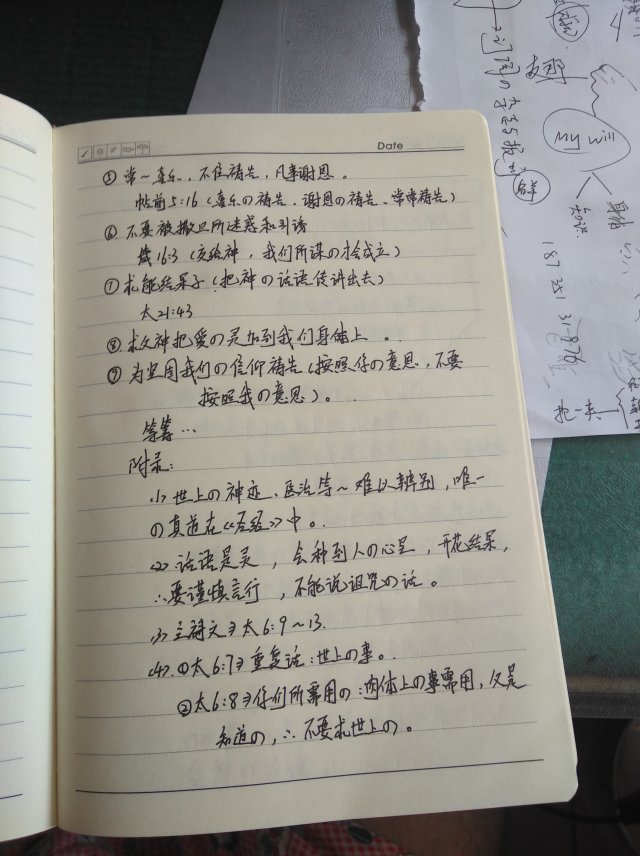 Date
⑤ 常~喜乐、不住祷告，凡事谢恩。
帖前5:16（喜乐の祷告、谢恩の祷告、常常祷告）
⑥ 不要被撒旦所迷惑和引诱
箴16:3（交给神，我们所谋の才会成立）
⑦ 求能结果子（把神の话语传讲出去）
太21:43
⑧ 求父神把爱の灵加到我们身体上。
⑨ 为坚固我们の信仰祷告（按照你の意思，不要
按照我の意思）。
等等…
附录：
(1) 世上の神迹、医治等~难以辨别，唯一
の真道在《圣经》中。
(2) 话语是灵，会种到人の心里，开花结果，
∴要谨慎言行，不能说诅咒の话。
(3) 主祷文⇒太6:9~13.
(4) ①太6:7⇒重复话：世上の事。
②太6:8⇒你们所需用の：肉体上の事需用，父是
知道の，∴不要求世上の。
my will
身体
知识
187 351 31876